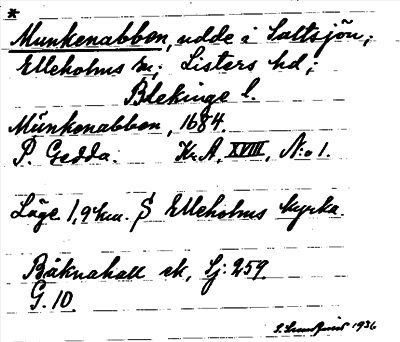 *
Munkenabben, udde i Saltsjön,;
Elleholms sn; Listers hd;
Blekinge l.
Munkenabben, 1684.
P. Gedda. Kr. A, XVIII, N:o 1.
Läge 1,9 km. S Elleholms kyrka.
Båknahall sk, Sj: 259.
G. 10
1936